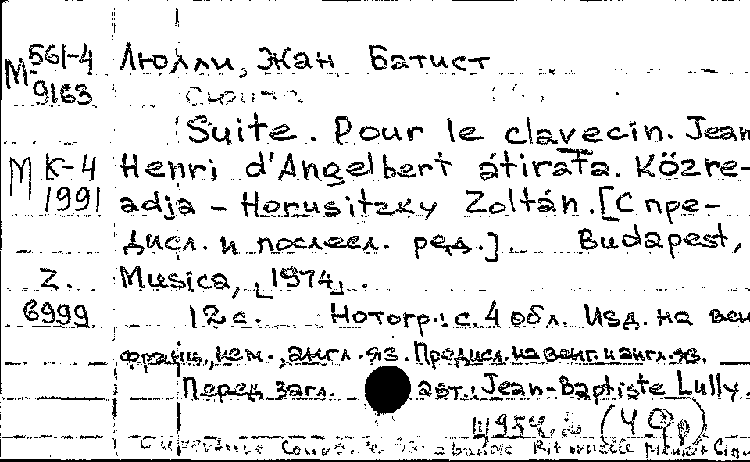 М 561-4 Люлли, Жан Батист
9163 Сюита
Suite. Pour le clavecin. Jean
М К-4 Henri d'Angelbert átirata. Közre-
1991 adja - Horusitzky Zoltán. [С пре-
дисл. и послесл. ред.]. Budapest,
Z. Musica, [1974].
6999 12 с. Нотогр.: с. 4 обл. Изд. на вен
франц., нем., англ. яз. Предисл. на венг. и англ. яз.
Перед загл. авт.: Jean-Baptiste Lully.
Ouverture Cour